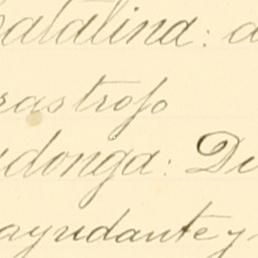 atalina: a
rastrofo
donga: Du
ayudante y